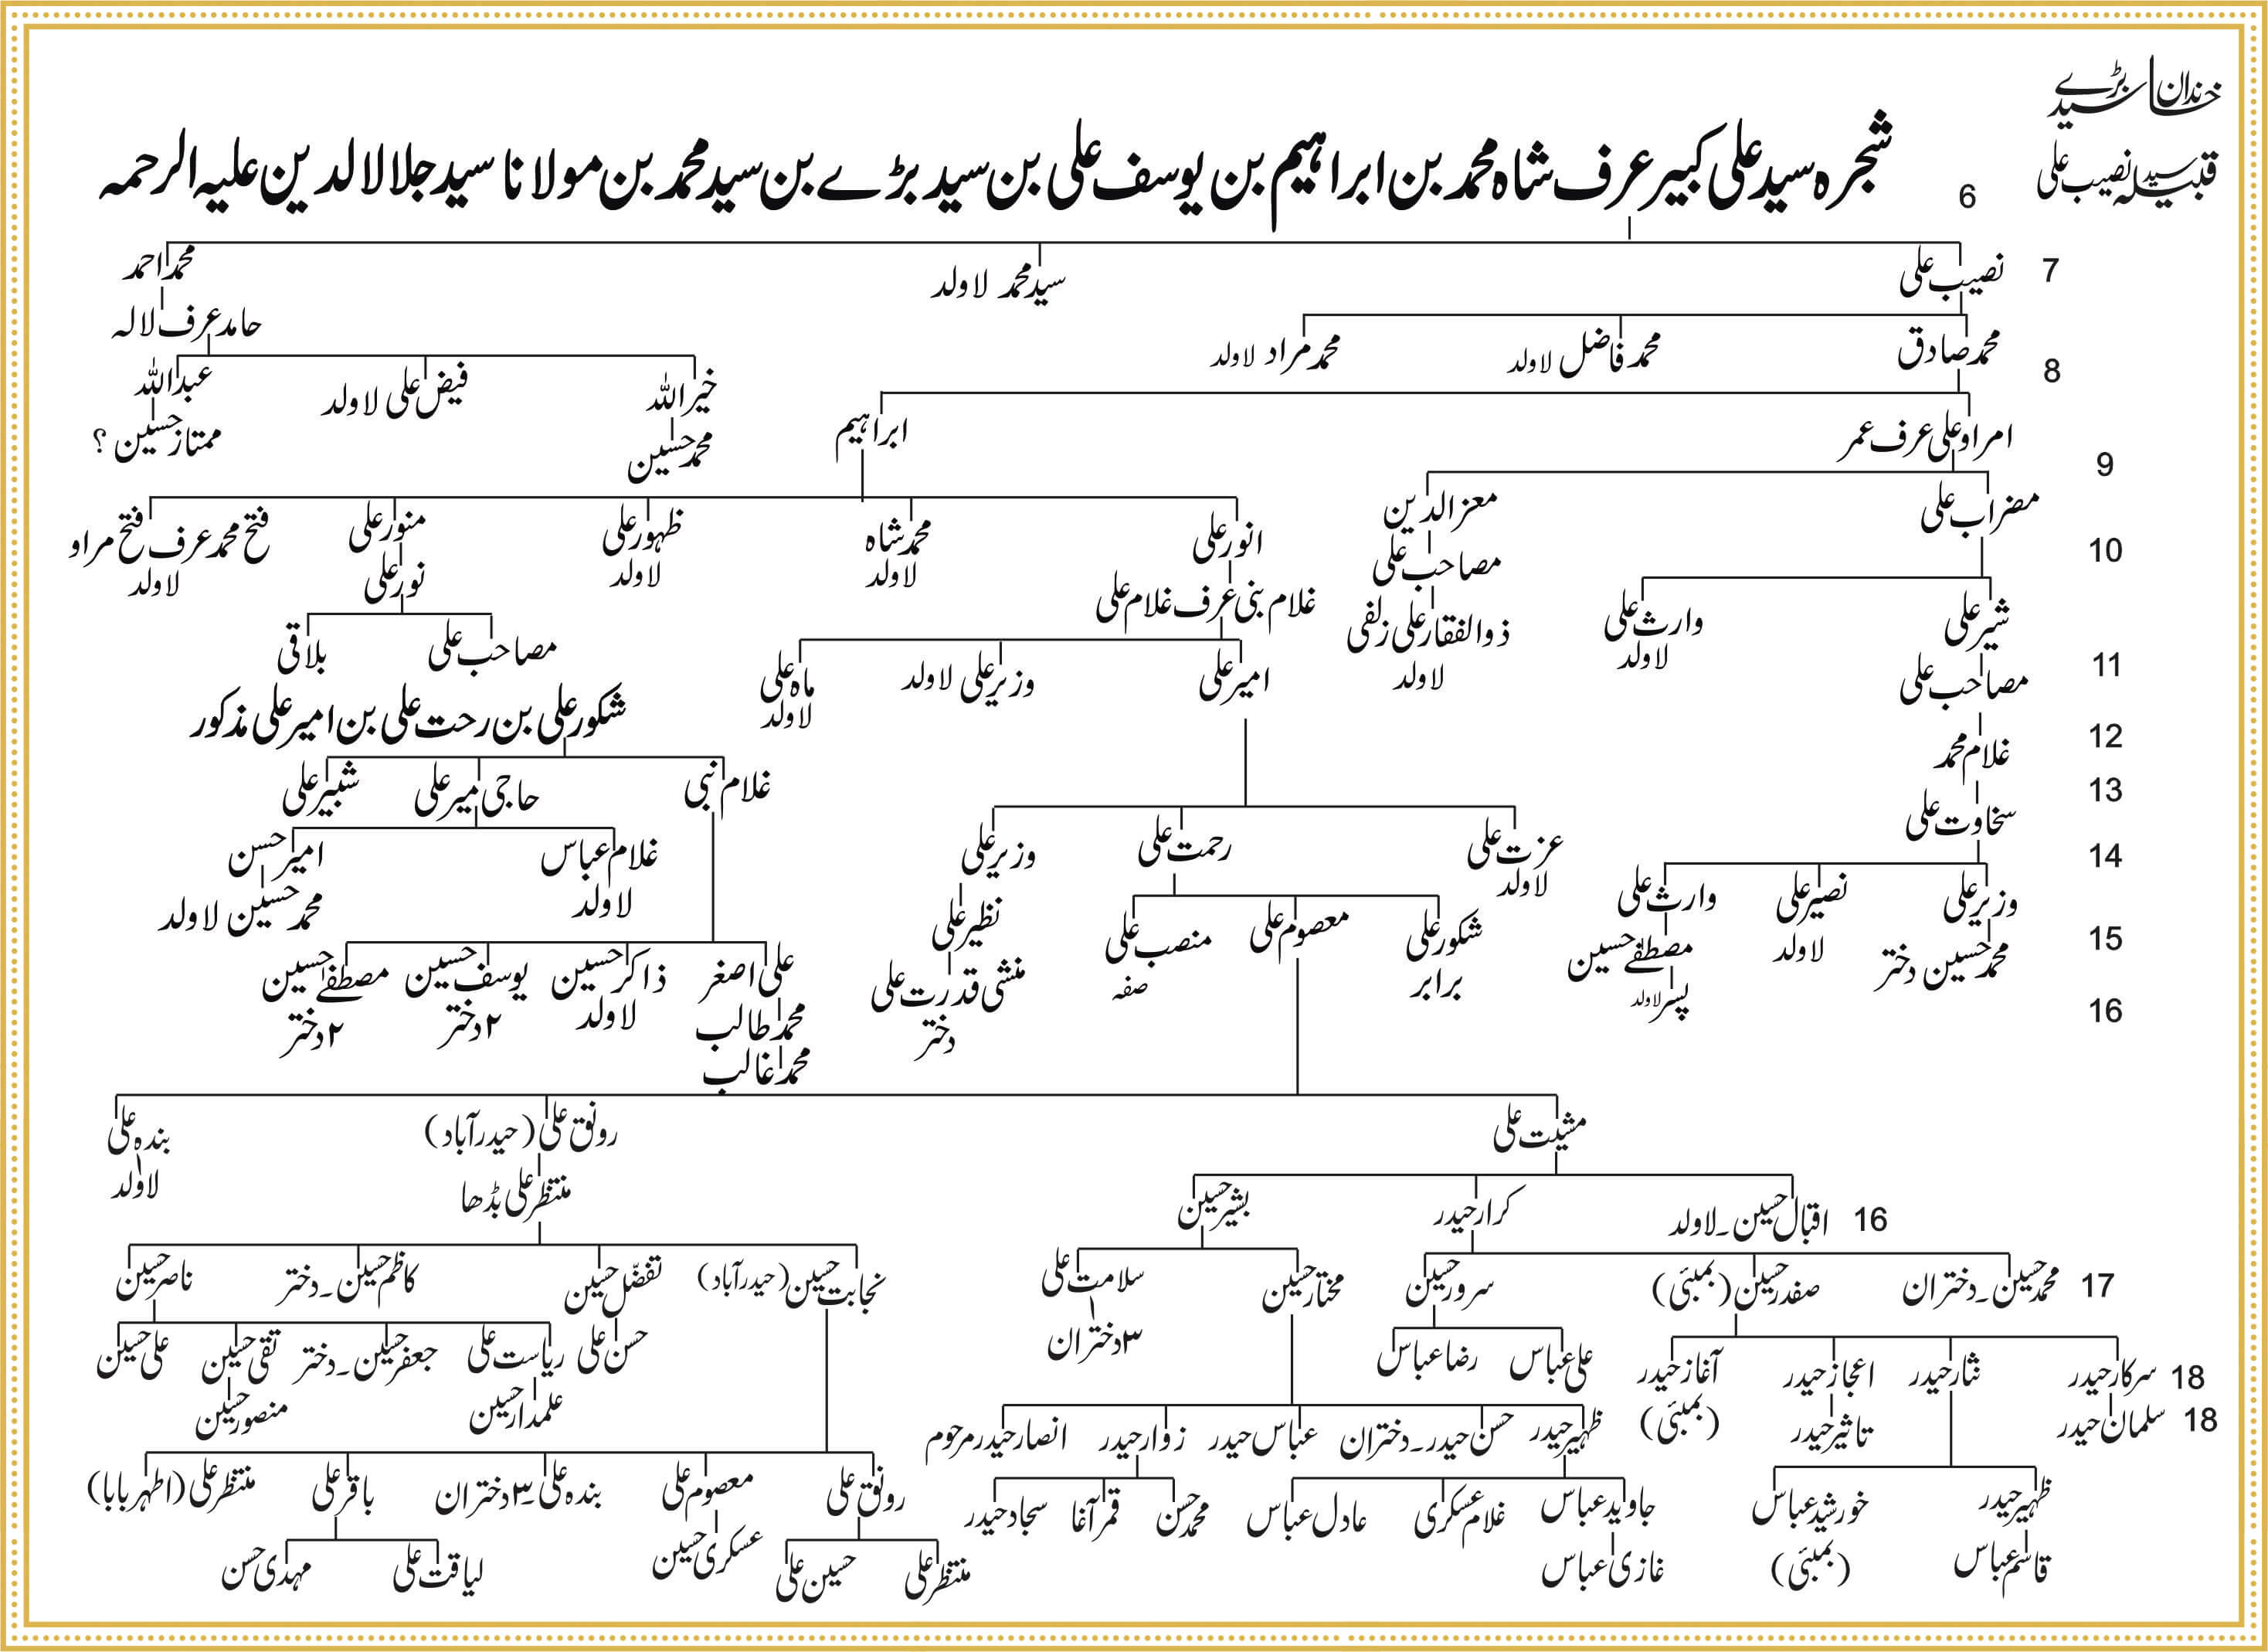 خاندان سید بڑے
قبیلہ سید نصیب علی
شجرہ سید علی کبیر عرف شاہ محمد بن ابراہیم بن یوسف علی بن سید بڑے بن سید محمد بن مولانا سید جلالالدین علیہ الرحمہ 6
7 نصیب علی سید محمد لاولد محمد احمد
حامد عرف لالہ
محمد صادق محمد فاضل لاولد محمد مراد لاولد
8 خیراللہ فیض علی لاولد عبداللہ
امراو علی عرف عمر ابراہیم محمد حسین ممتاز حسین ؟
9
مضراب علی معزالدین انور علی محمد شاہ لاولد ظہور علی لاولد منور علی فتح محمد عرف فتح مراو لاولد
10 مصاحب علی غلام بنی عرف غلام علی نور علی
شیر علی وارث علی لاولد ذوالفقار علی زلفی لاولد
مصاحب علی بلاقی
11 مصاحب علی امیر علی وزیر علی لاولد ماہ علی لاولد
شکور علی بن رحت علی بن امیر علی مذکور
12 غلام محمد
13 سخاوت علی غلام نبی حاجی میر علی شبیر علی
14 عزت علی لاولد رحمت علی وزیر علی غلام عباس لاولد امیر حسن
محمد حسین لاولد
وزیر علی نصیر علی لاولد وارث علی شکور علی برابر معصوم علی منصب علی صفہ نظیر علی
15 محمد حسین دختر مصطفےٰ حسین منشی قدرت علی دختر
علی اصغر ذاکر حسین لاولد یوسف حسین ۲ دختر مصطفےٰ حسین ۲ دختر
16 پسر لاولد محمد طالب
محمد غالب
مشیت علی رونق علی (حیدرآباد) بندہ علی لاولد
منتظر علی بڈھا
16 اقبال حسین۔ لاولد کرار حیدر بشیر حسین
17 محمد حسین۔ دختران صفدر حسین (بمبئی) سرور حسین مختار حسین سلامت علی ۳ دختران
نجابت حسین (حیدرآباد) تفضّل حسین کاظم حسین۔ دختر ناصر حسین
حسن علی ریاست علی جعفر حسین۔ دختر تقی حسین علی حسین
علمدار حسین منصور حسین
18 سرکار حیدر نثار حیدر اعجاز حیدر آغاز حیدر (بمبئی) علی عباس رضا عباس
18 سلمان حیدر تاثیر حیدر
ظہیر حیدر حسن حیدر۔ دختران عباس حیدر زوار حیدر انصار حیدر مرحوم
ظہیر حیدر خورشید عباس (بمبئی) جاوید عباس غلام عسکری عادل عباس محمد حسن قمر آغا سجاد حیدر
رونق علی معصوم علی بندہ علی۔ ۳ دختران باقر علی منتظر علی (اطہر بابا)
قاسم عباس غازی عباس منتظر علی حسین علی عسکری حسین لیاقت علی مہدی حسن